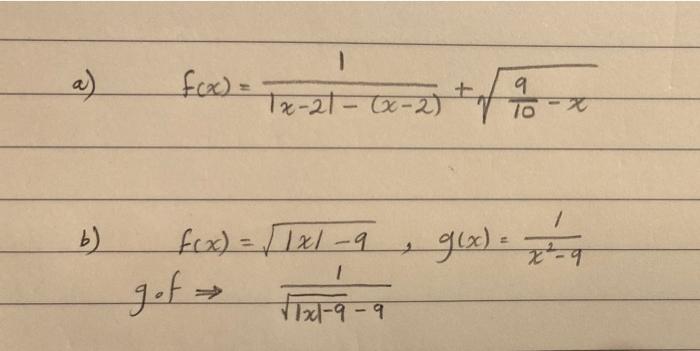 a) f(x) = 1/(|x-2| - (x-2)) + √(9/10 - x)
b) f(x) = √(|x| - 9) , g(x) = 1/(x² - 9)
g∘f ⇒ 1/(√(|x|-9) - 9)